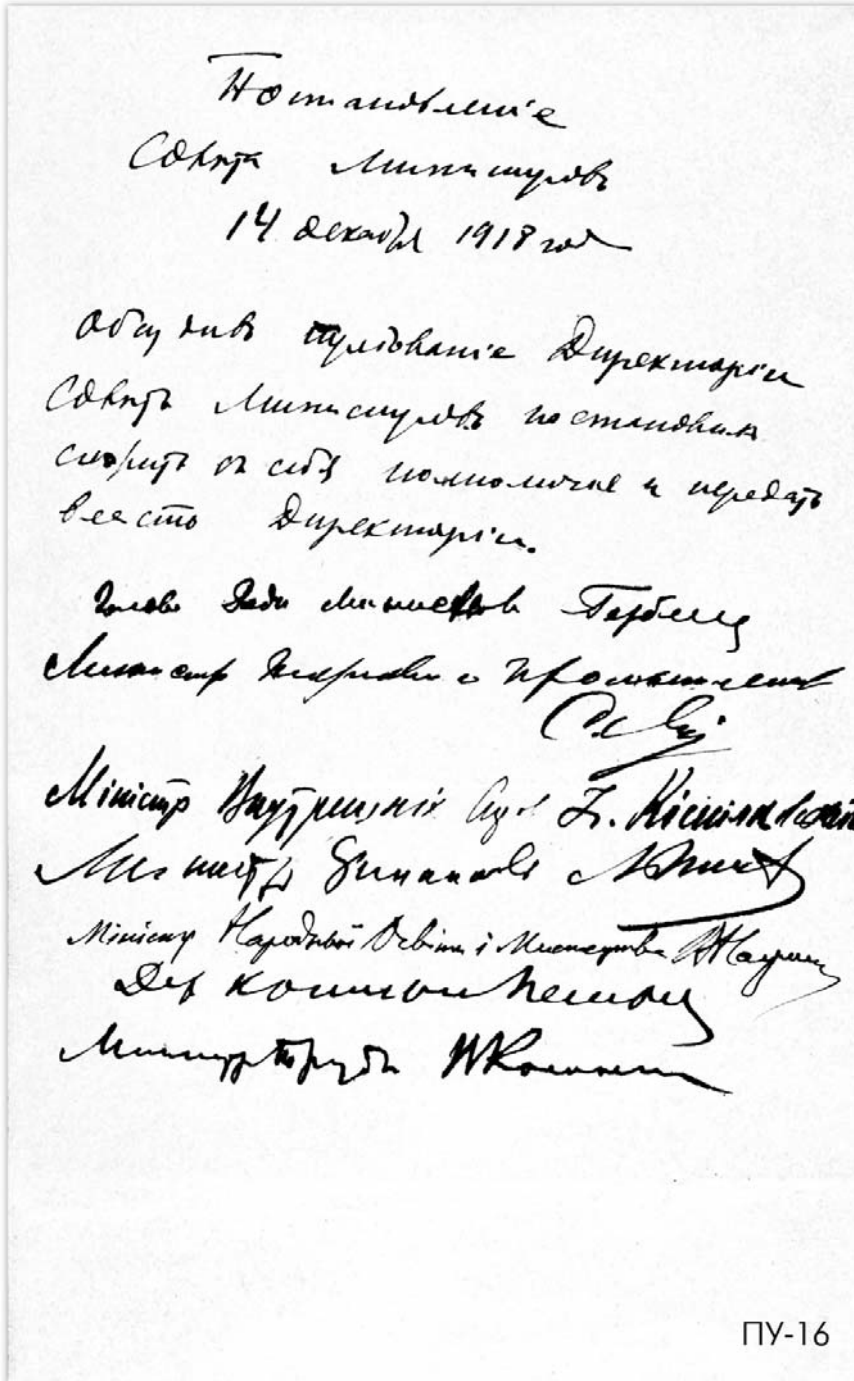 Постановленіе
Совѣта Министровъ
14 декабря 1918 года
Обсудивъ требованіе Директоріи
Совѣтъ Министровъ постановилъ
сложить съ себя полномочія и передать
власть Директоріи.
Голова Ради Министров Гербель
Министр Торговли и Промышлен
Міністр Внутрішніх Справ І. Кістяковський
Министръ Финансовъ
Міністр Народньої Освіти і Мистецтва В Науменко
Министръ Труда В Косинский
ПУ-16